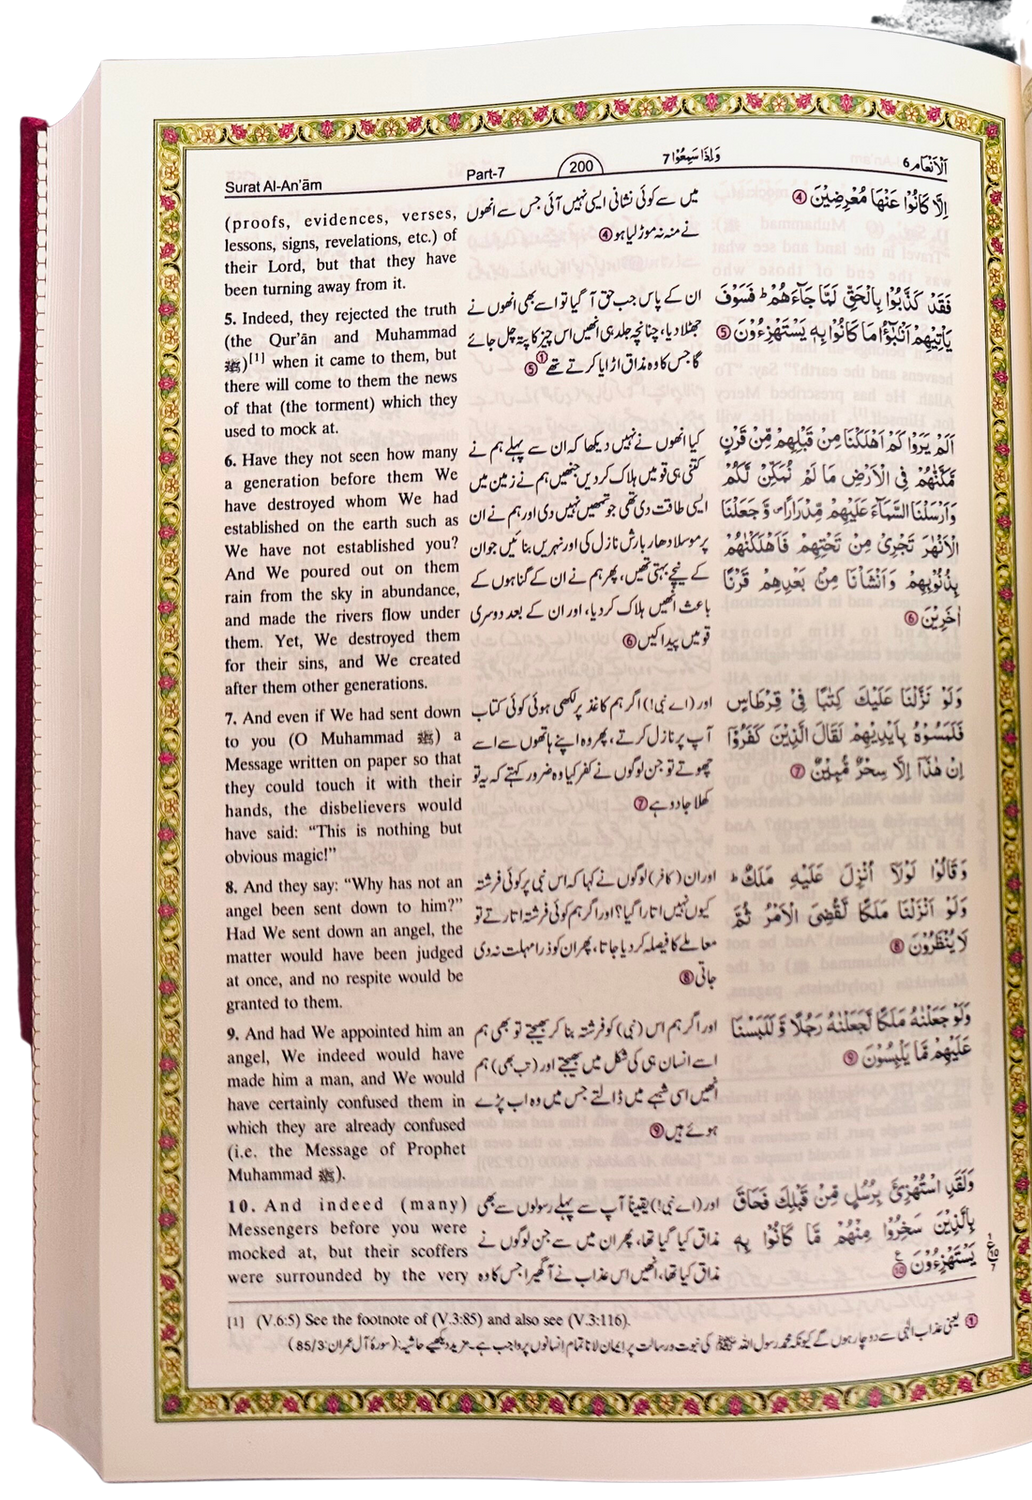 Surat Al-An'ām
Part-7
200
وَاِذَا سَمِعُوْا 7
اَلْاَنْعَام 6
(proofs, evidences, verses,
lessons, signs, revelations, etc.) of
their Lord, but that they have
been turning away from it.
5. Indeed, they rejected the truth
(the Qur'ān and Muhammad
ﷺ)[1] when it came to them, but
there will come to them the news
of that (the torment) which they
used to mock at.
6. Have they not seen how many
a generation before them We
have destroyed whom We had
established on the earth such as
We have not established you?
And We poured out on them
rain from the sky in abundance,
and made the rivers flow under
them. Yet, We destroyed them
for their sins, and We created
after them other generations.
7. And even if We had sent down
to you (O Muhammad ﷺ) a
Message written on paper so that
they could touch it with their
hands, the disbelievers would
have said: “This is nothing but
obvious magic!”
8. And they say: “Why has not an
angel been sent down to him?”
Had We sent down an angel, the
matter would have been judged
at once, and no respite would be
granted to them.
9. And had We appointed him an
angel, We indeed would have
made him a man, and We would
have certainly confused them in
which they are already confused
(i.e. the Message of Prophet
Muhammad ﷺ).
10. And indeed (many)
Messengers before you were
mocked at, but their scoffers
were surrounded by the very
میں سے کوئی نشانی ایسی نہیں آئی جس سے انھوں
نے منہ نہ موڑ لیا ہو ④
ان کے پاس جب حق آ گیا تو اسے بھی انھوں نے
جھٹلا دیا، چنانچہ جلد ہی انھیں اس چیز کا پتہ چل جائے
گا جس کا وہ مذاق اڑایا کرتے تھے ① ⑤
کیا انھوں نے نہیں دیکھا کہ ان سے پہلے ہم نے
کتنی ہی قومیں ہلاک کر دیں جنھیں ہم نے زمین میں
ایسی طاقت دی تھی جو تمھیں نہیں دی اور ہم نے ان
پر موسلا دھار بارش نازل کی اور نہریں بنائیں جو ان
کے نیچے بہتی تھیں، پھر ہم نے ان کے گناہوں کے
باعث انھیں ہلاک کر دیا، اور ان کے بعد دوسری
قومیں پیدا کیں ⑥
اور (اے نبی!) اگر ہم کاغذ پر لکھی ہوئی کوئی کتاب
آپ پر نازل کرتے، پھر وہ اپنے ہاتھوں سے اسے
چھوتے تو جن لوگوں نے کفر کیا وہ ضرور کہتے کہ یہ تو
کھلا جادو ہے ⑦
اور ان (کافر) لوگوں نے کہا کہ اس نبی پر کوئی فرشتہ
کیوں نہیں اتارا گیا؟ اور اگر ہم کوئی فرشتہ اتارتے تو
معاملے کا فیصلہ کر دیا جاتا، پھر ان کو ذرا مہلت نہ دی
جاتی ⑧
اور اگر ہم اس (نبی) کو فرشتہ بنا کر بھیجتے تو بھی ہم
اسے انسان ہی کی شکل میں بھیجتے اور (تب بھی) ہم
انھیں اسی شبہے میں ڈالتے جس میں وہ اب پڑے
ہوئے ہیں ⑨
اور (اے نبی!) یقیناً آپ سے پہلے رسولوں سے بھی
مذاق کیا گیا تھا، پھر ان میں سے جن لوگوں نے
مذاق کیا تھا، انھیں اس عذاب نے آ گھیرا جس کا وہ
اِلَّا كَانُوْا عَنْهَا مُعْرِضِيْنَ ④
فَقَدْ كَذَّبُوْا بِالْحَقِّ لَمَّا جَآءَهُمْ ؕ فَسَوْفَ
يَاْتِيْهِمْ اَنْۢبٰٓؤُا مَا كَانُوْا بِهٖ يَسْتَهْزِءُوْنَ ⑤
اَلَمْ يَرَوْا كَمْ اَهْلَكْنَا مِنْ قَبْلِهِمْ مِّنْ قَرْنٍ
مَّكَّنّٰهُمْ فِى الْاَرْضِ مَا لَمْ نُمَكِّنْ لَّكُمْ
وَاَرْسَلْنَا السَّمَآءَ عَلَيْهِمْ مِّدْرَارًا ۪ وَّجَعَلْنَا
الْاَنْهٰرَ تَجْرِىْ مِنْ تَحْتِهِمْ فَاَهْلَكْنٰهُمْ
بِذُنُوْبِهِمْ وَاَنْشَاْنَا مِنْۢ بَعْدِهِمْ قَرْنًا
اٰخَرِيْنَ ⑥
وَلَوْ نَزَّلْنَا عَلَيْكَ كِتٰبًا فِىْ قِرْطَاسٍ
فَلَمَسُوْهُ بِاَيْدِيْهِمْ لَقَالَ الَّذِيْنَ كَفَرُوْٓا
اِنْ هٰذَآ اِلَّا سِحْرٌ مُّبِيْنٌ ⑦
وَقَالُوْا لَوْلَآ اُنْزِلَ عَلَيْهِ مَلَكٌ ؕ
وَلَوْ اَنْزَلْنَا مَلَكًا لَّقُضِىَ الْاَمْرُ ثُمَّ
لَا يُنْظَرُوْنَ ⑧
وَلَوْ جَعَلْنٰهُ مَلَكًا لَّجَعَلْنٰهُ رَجُلًا وَّلَلَبَسْنَا
عَلَيْهِمْ مَّا يَلْبِسُوْنَ ⑨
وَلَقَدِ اسْتُهْزِئَ بِرُسُلٍ مِّنْ قَبْلِكَ فَحَاقَ
بِالَّذِيْنَ سَخِرُوْا مِنْهُمْ مَّا كَانُوْا بِهٖ
يَسْتَهْزِءُوْنَ ⑩
[1] (V.6:5) See the footnote of (V.3:85) and also see (V.3:116).
① یعنی عذاب الٰہی سے دو چار ہوں گے کیونکہ محمد رسول اللہ ﷺ کی نبوت و رسالت پر ایمان لانا تمام انسانوں پر واجب ہے۔ مزید دیکھیے حاشیہ: (سورۂ آل عمران: 85/3)